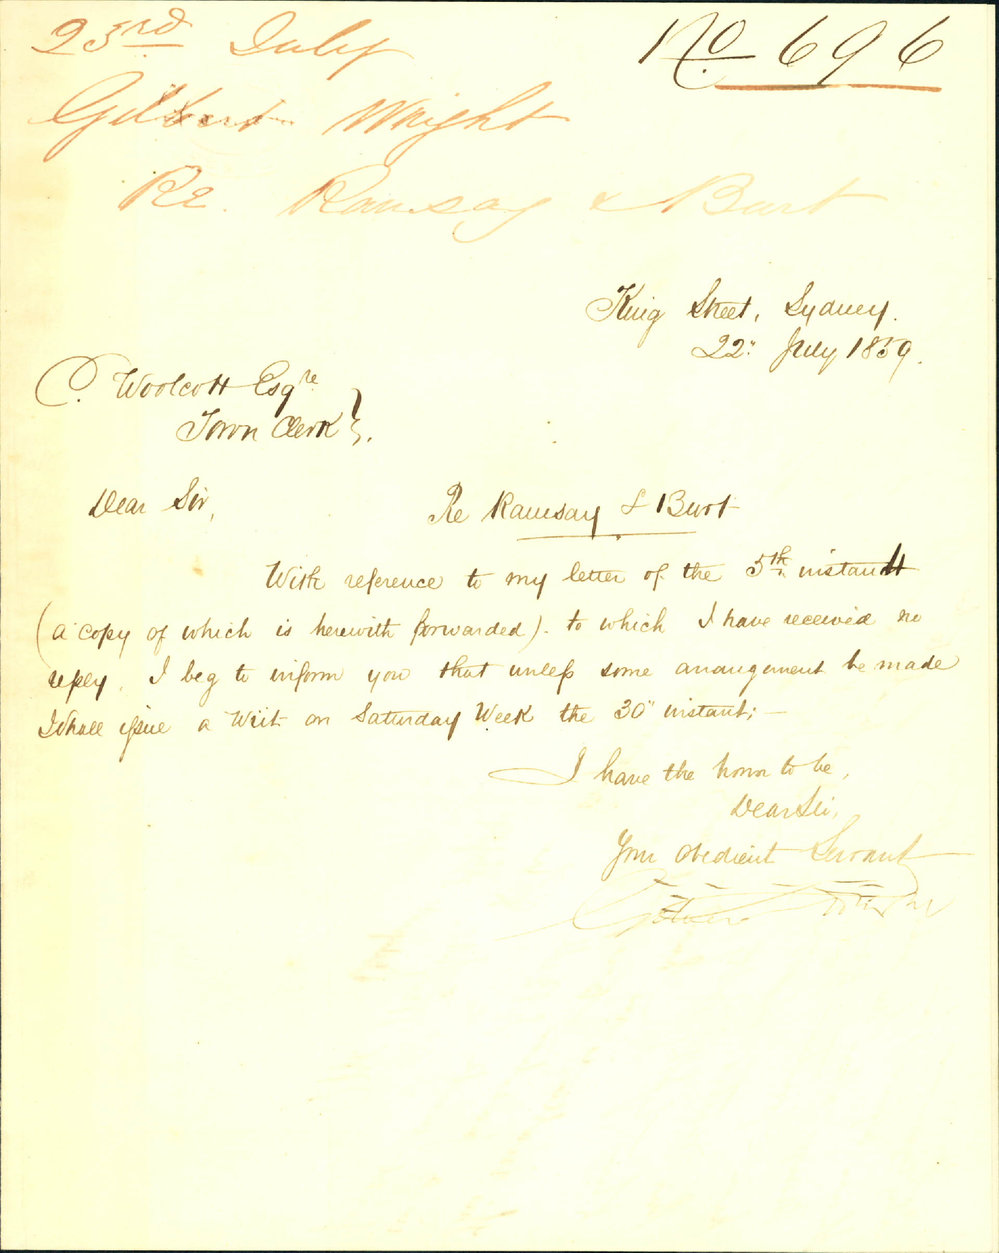 23rd July
No 696
Gilbert Wright
Re. Ramsay & Burt
King Street, Sydney.
22" July 1859.
C. Woolcott Esqre
Town Clerk
Dear Sir,
Re Ramsay & Burt
With reference to my letter of the 5th instant
(a copy of which is herewith forwarded). to which I have received no
reply. I beg to inform you that unless some arrangement be made
I shall issue a Writ on Saturday Week the 30" instant;—
I have the honor to be,
Dear Sir,
Your Obedient Servant
Gilbert Wright